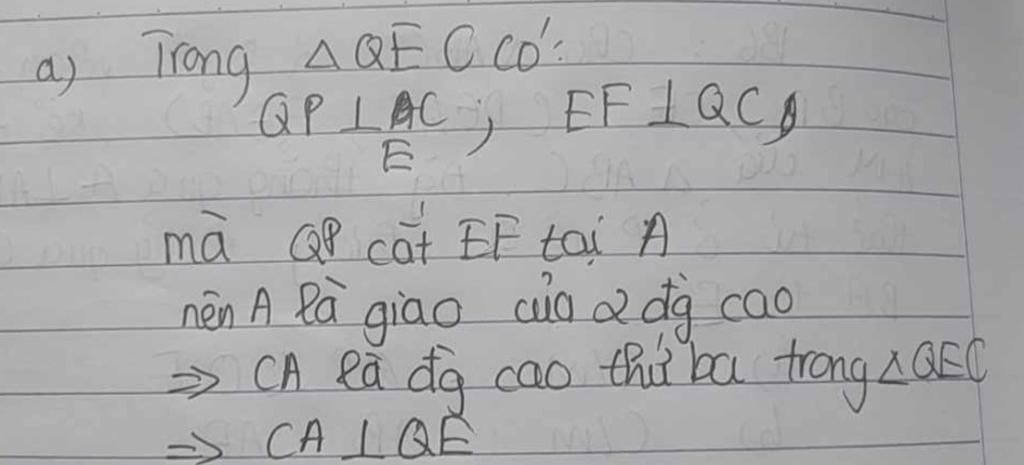 a) Trong △QEC có:
QP ⊥ AC; EF ⊥ QC
E
mà QP cắt EF tại A
nên A là giao của 2 đg cao
⇒ CA là đg cao thứ ba trong △QEC
⇒ CA ⊥ QE